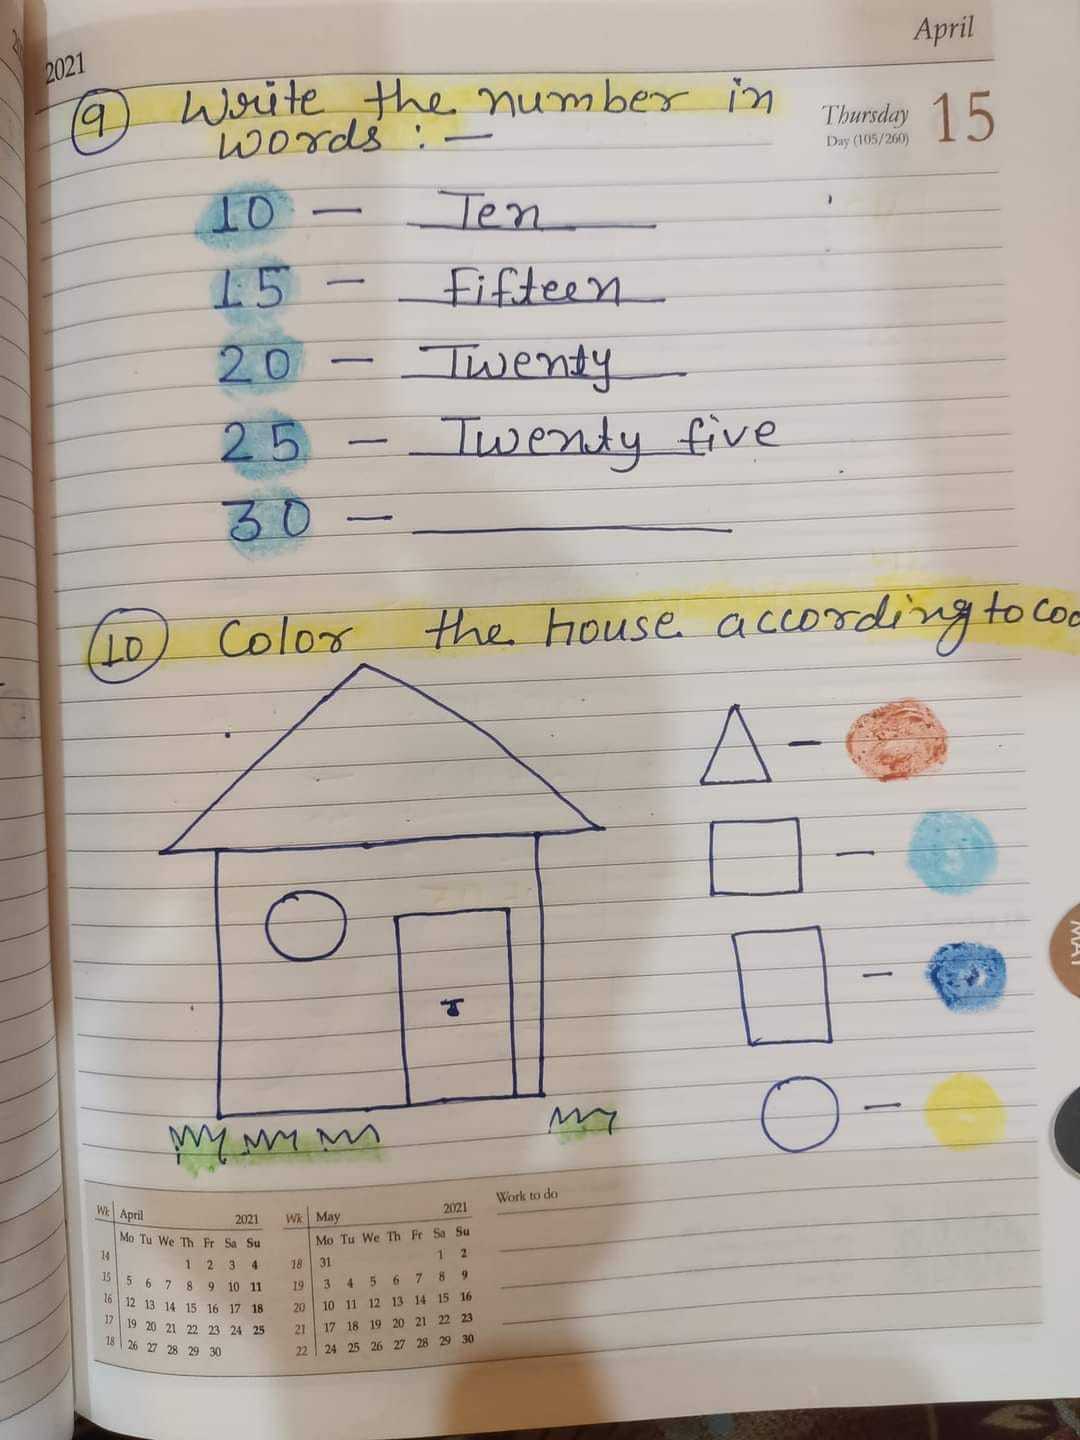 2021
April
Thursday 15
Day (105/260)
9 Write the number in
words : —
10 — Ten
15 — Fifteen
20 — Twenty
25 — Twenty five
30 —
10 Color the house according to
MAY
Wk April 2021
Mo Tu We Th Fr Sa Su
14 1 2 3 4
15 5 6 7 8 9 10 11
16 12 13 14 15 16 17 18
17 19 20 21 22 23 24 25
18 26 27 28 29 30
Wk May 2021
Mo Tu We Th Fr Sa Su
18 31 1 2
19 3 4 5 6 7 8 9
20 10 11 12 13 14 15 16
21 17 18 19 20 21 22 23
22 24 25 26 27 28 29 30
Work to do